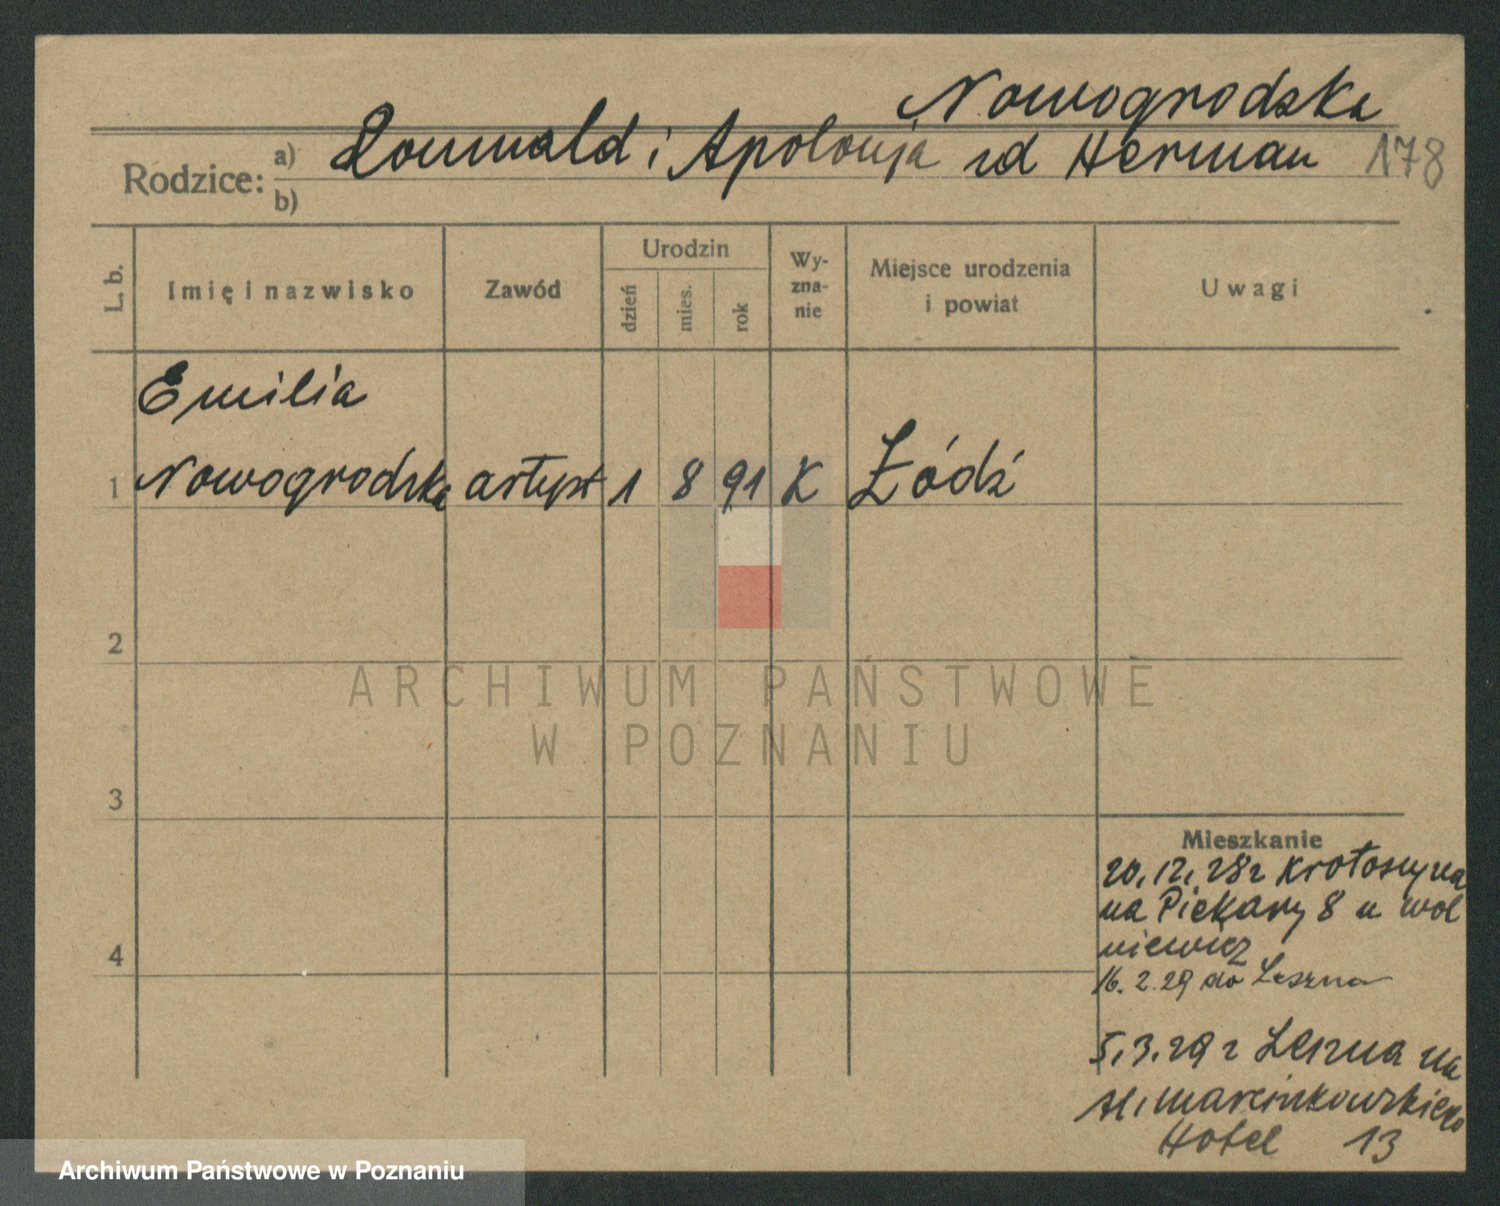 Nowogrodzka
Rodzice: a) Romuald i Apolonja zd Herman 178
b)
L. b. Imię i nazwisko Zawód Urodzin dzień mies. rok Wy-zna-nie Miejsce urodzenia i powiat Uwagi
Emilia
1 Nowogrodzka artyst 1 8 91 K Łódź
2
3
4
Mieszkanie
20.12.28 z Krotoszyna
na Piekary 8 u Wol
niewicz
16.2.29 do Leszna
5.3.29 z Leszna na
Al. Marcinkowskiego
Hotel 13
ARCHIWUM PAŃSTWOWE
W POZNANIU
Archiwum Państwowe w Poznaniu